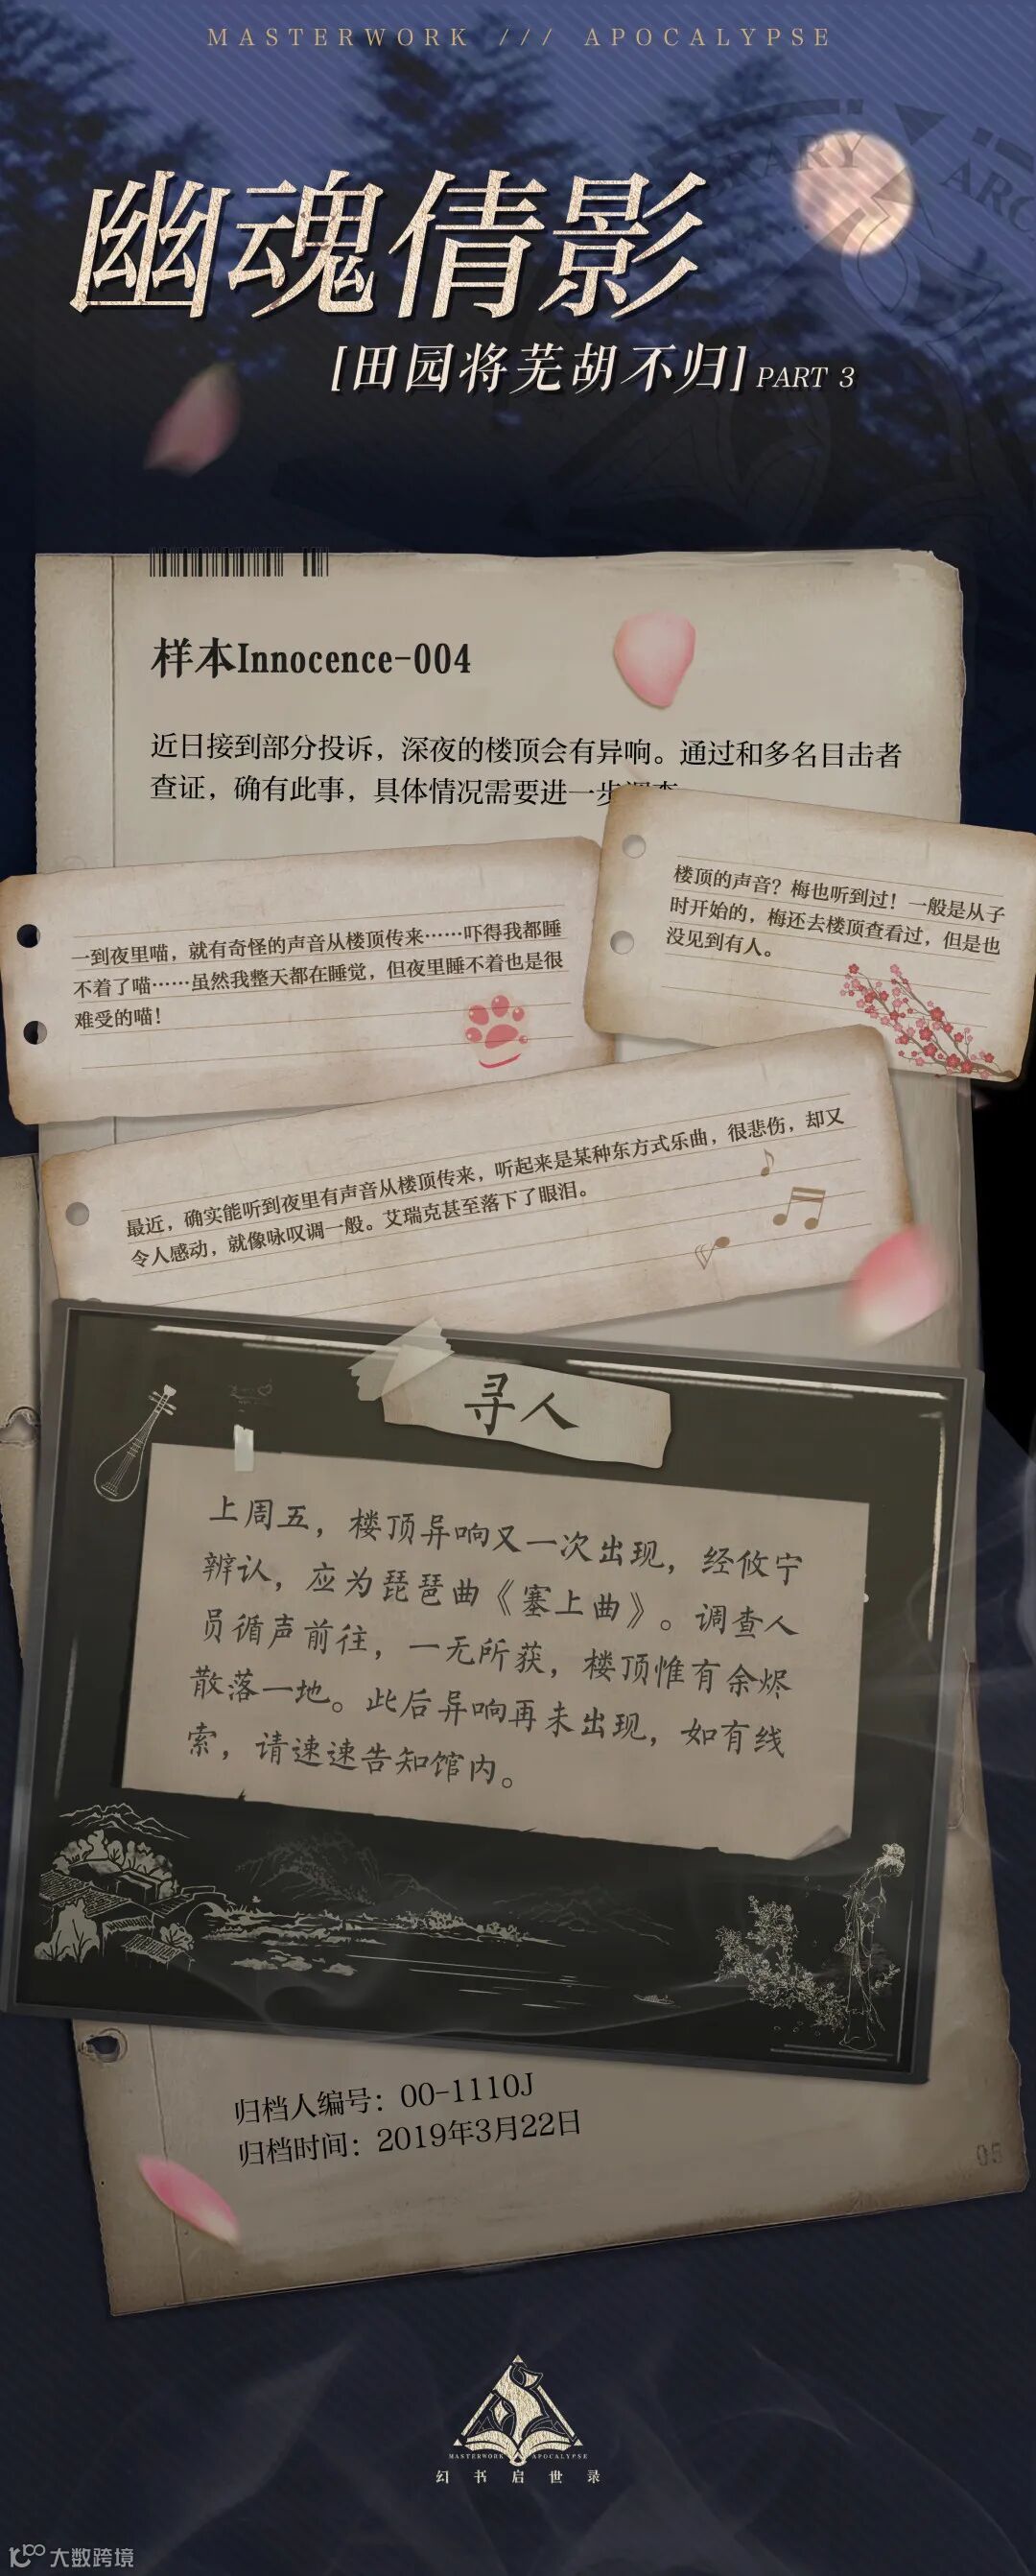 MASTERWORK /// APOCALYPSE
幽魂倩影
[田园将芜胡不归] PART 3
样本Innocence-004
近日接到部分投诉，深夜的楼顶会有异响。通过和多名目击者
查证，确有此事，具体情况需要进一步
楼顶的声音？梅也听到过！一般是从子
时开始的，梅还去楼顶查看过，但是也
没见到有人。
一到夜里喵，就有奇怪的声音从楼顶传来……吓得我都睡
不着了喵……虽然我整天都在睡觉，但夜里睡不着也是很
难受的喵！
最近，确实能听到夜里有声音从楼顶传来，听起来是某种东方式乐曲，很悲伤，却又
令人感动，就像咏叹调一般。艾瑞克甚至落下了眼泪。
寻人
上周五，楼顶异响又一次出现，经攸宁
辨认，应为琵琶曲《塞上曲》。调查人
员循声前往，一无所获，楼顶惟有余烬
散落一地。此后异响再未出现，如有线
索，请速速告知馆内。
归档人编号：00-1110J
归档时间：2019年3月22日
05
MASTERWORK APOCALYPSE
幻书启世录
大数跨境